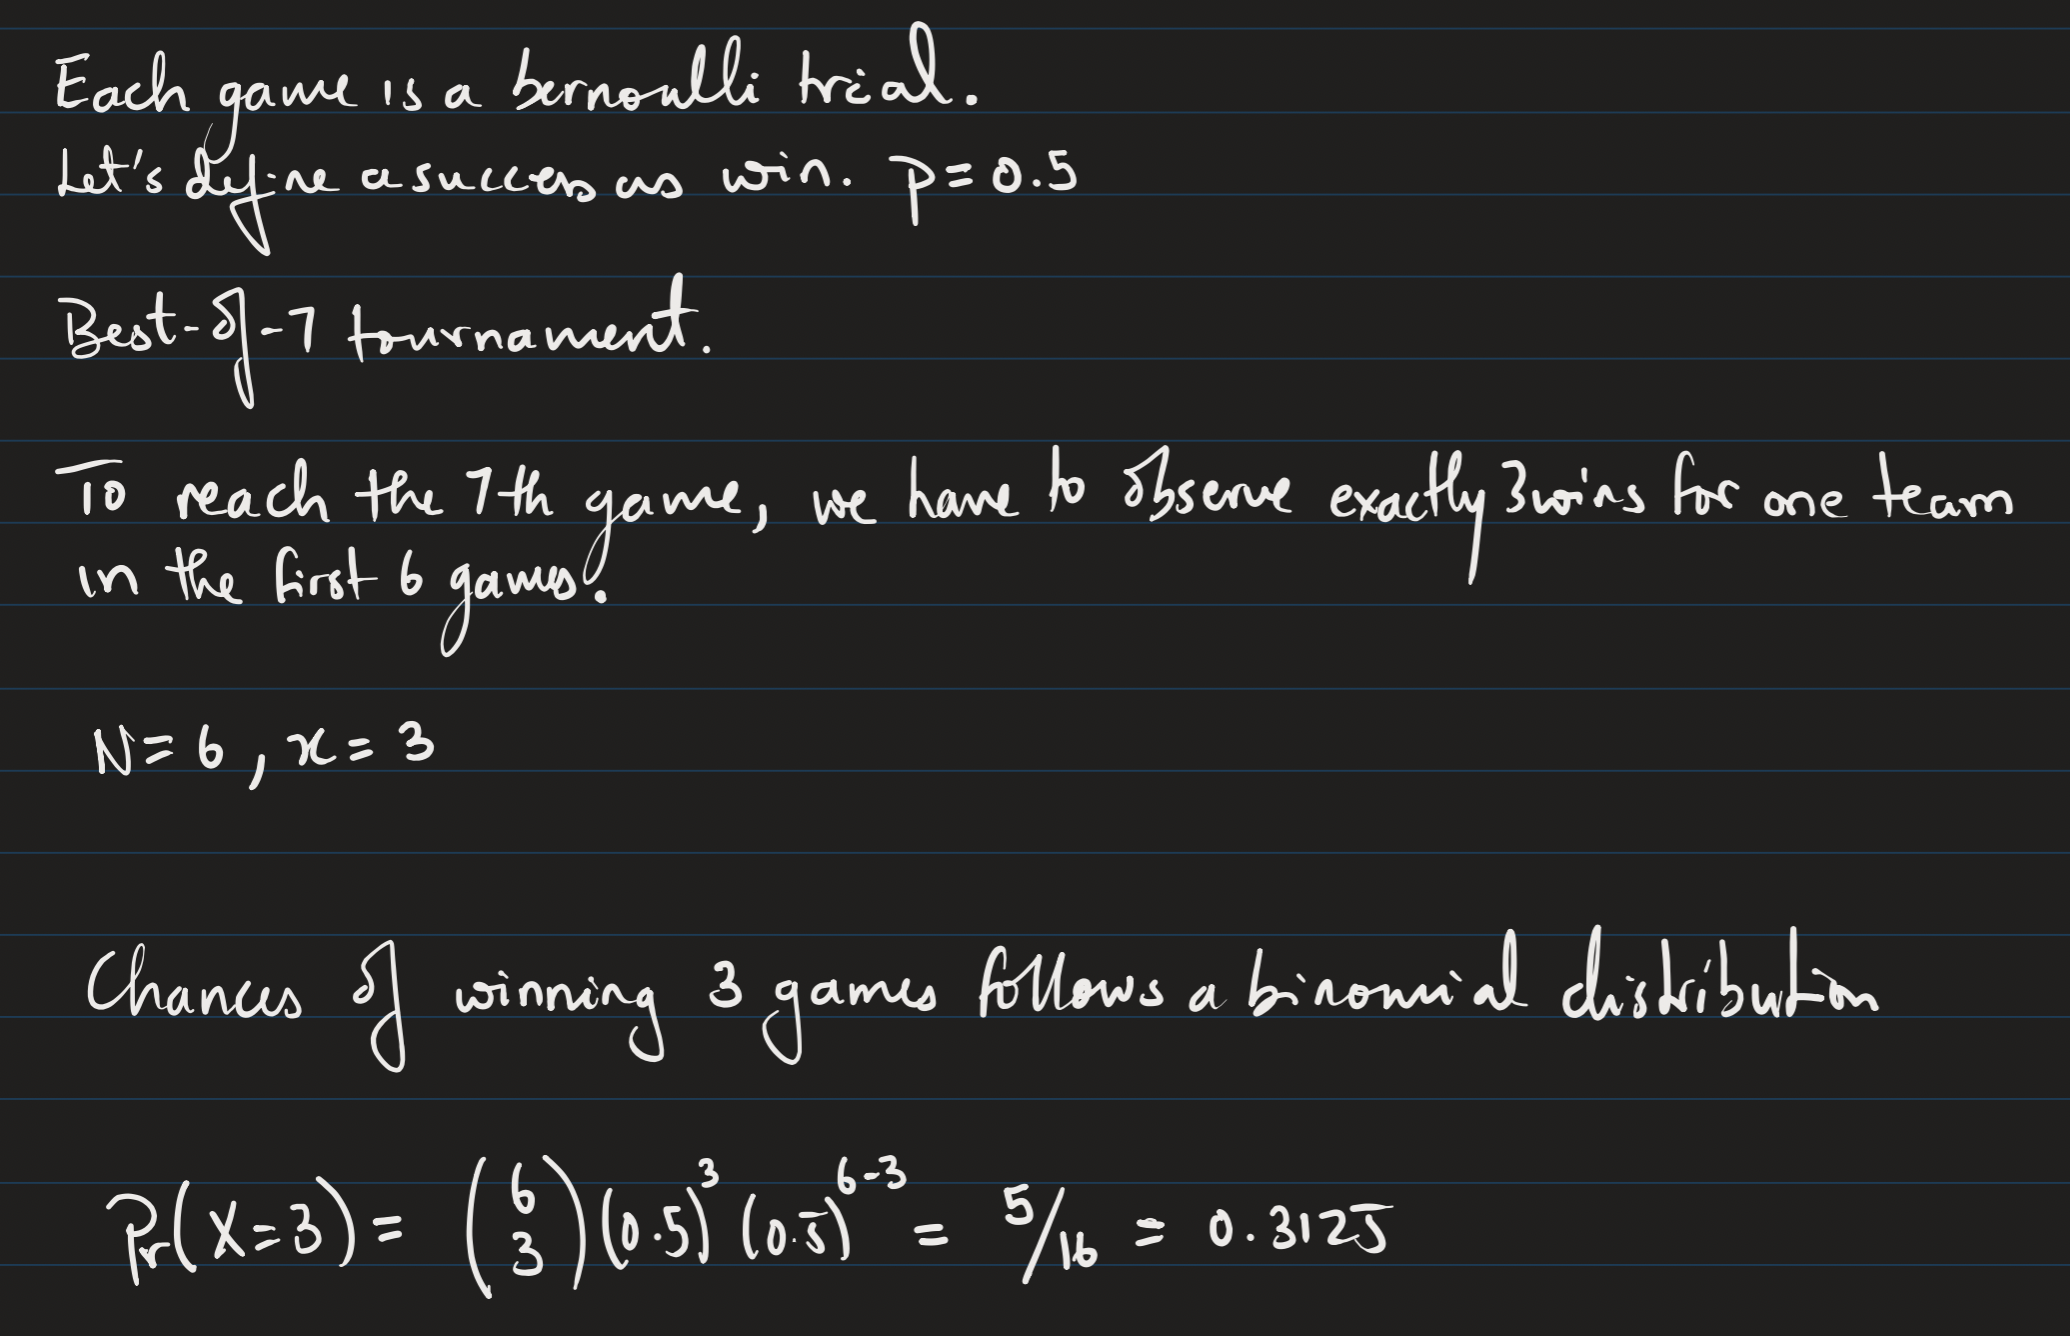 Each game is a bernoulli trial.
Let's define a success as win. p = 0.5
Best-of-7 tournament.
To reach the 7th game, we have to observe exactly 3 wins for one team
in the first 6 games.
N = 6, x = 3
Chances of winning 3 games follows a binomial distribution
Pr(X=3) = (6 3) (0.5)^3 (0.5)^{6-3} = 5/16 = 0.3125